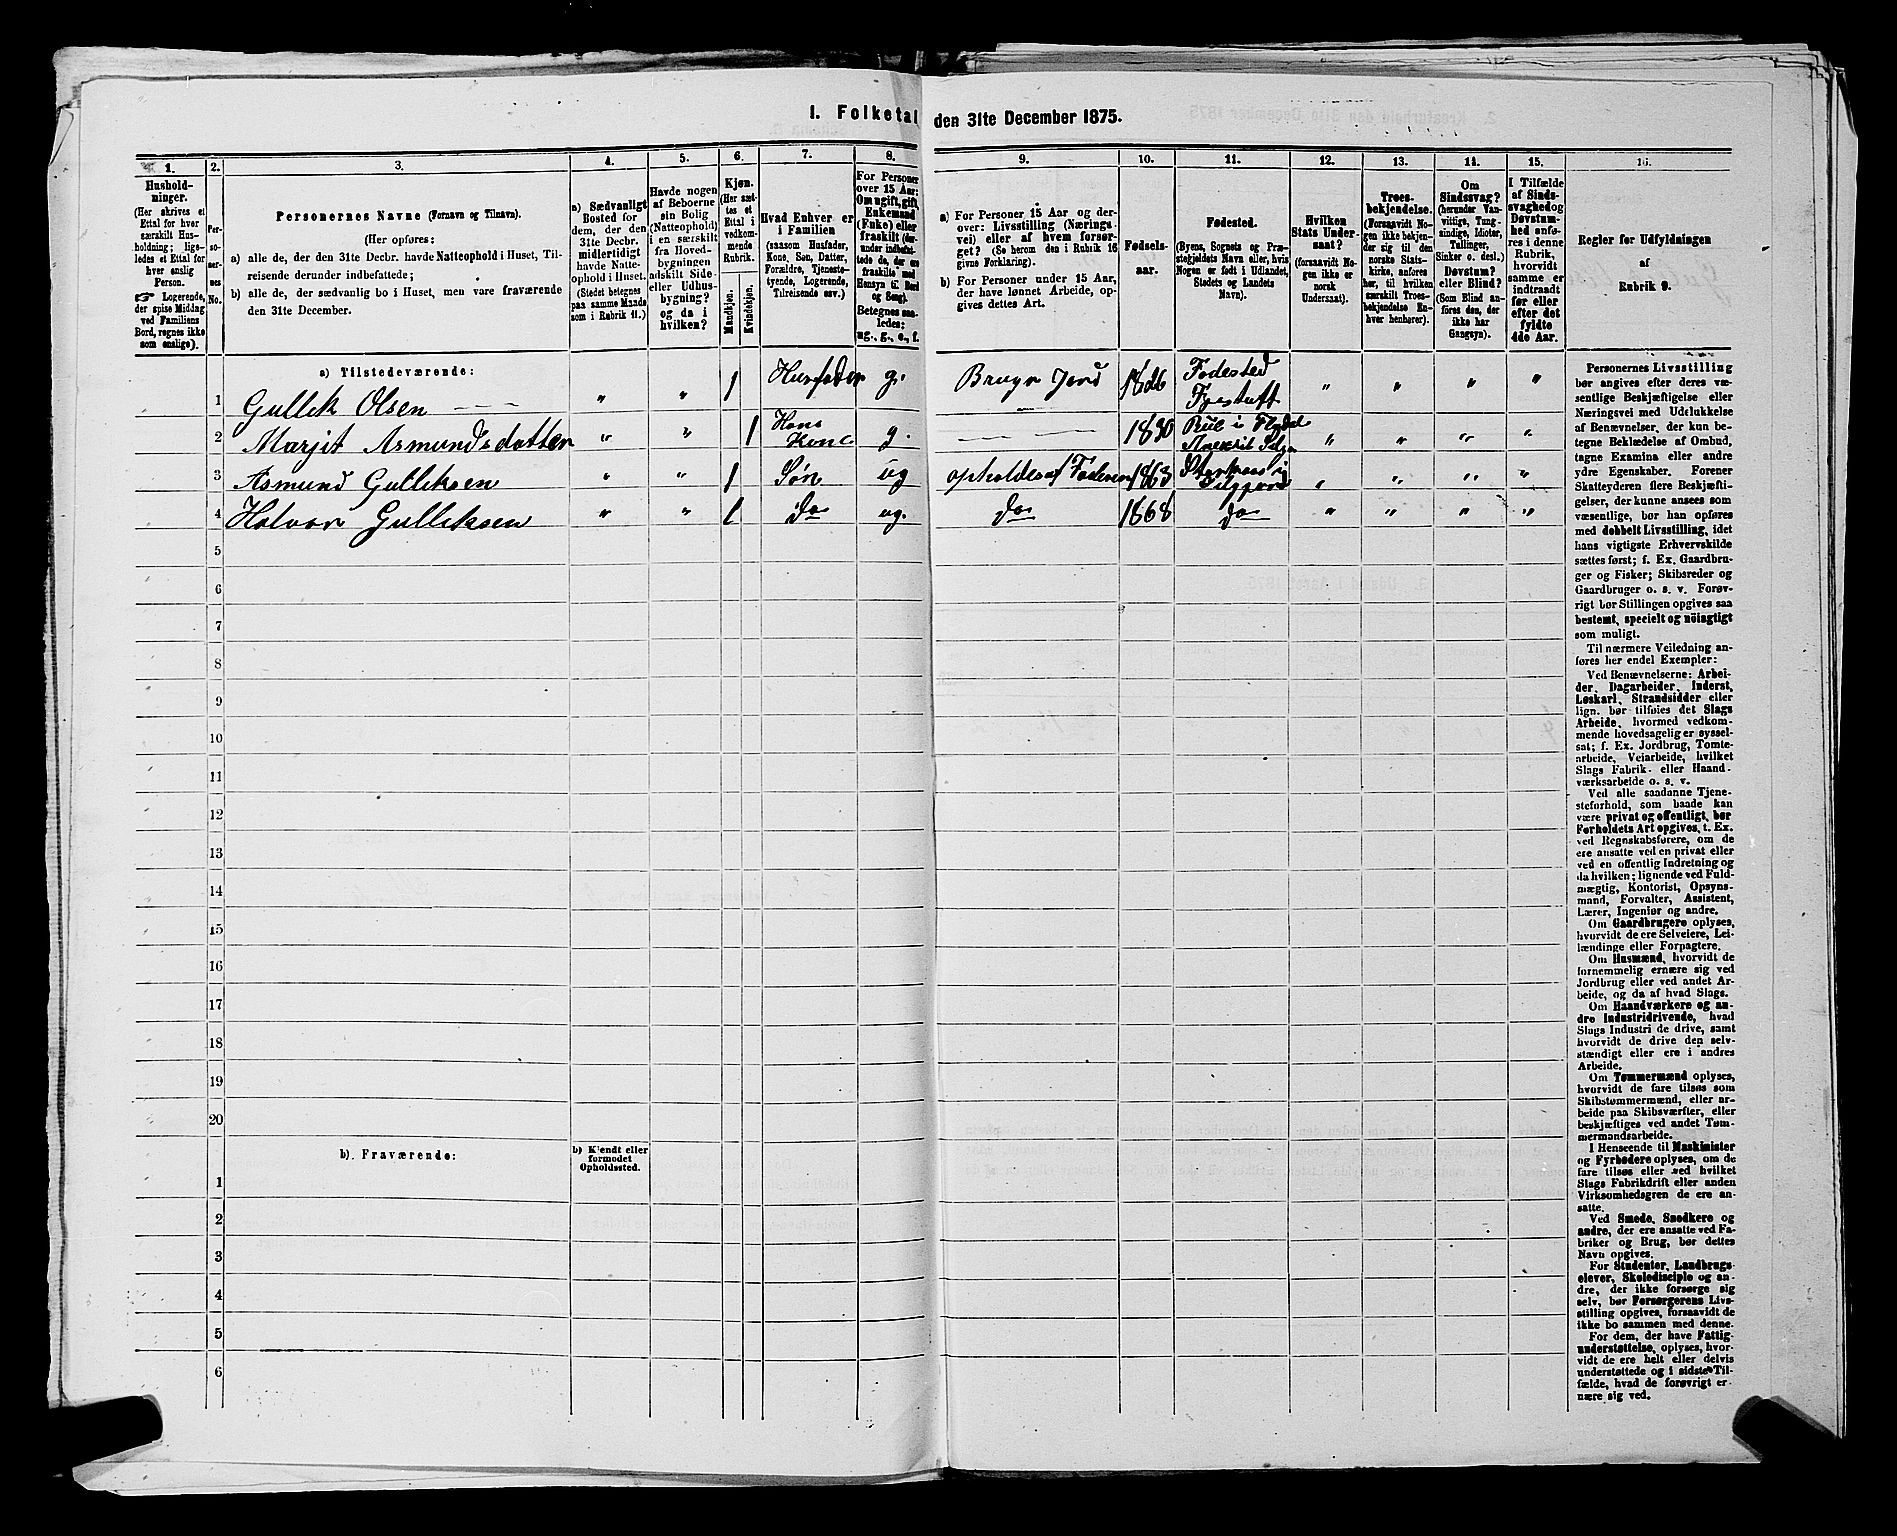 1. Folketal den 31te December 1875.
1. 2. 3. 4. 5. 6. 7. 8. 9. 10. 11. 12. 13. 14. 15. 16.
Hushold-
ninger.
(Her skrives et
Ettal for hver
særskilt Hus-
holdning; lige-
ledes et Ettal for
hver enslig
Person.
☞ Logerende,
der spise Middag
ved Familiens
Bord, regnes ikke
som enslige).
Per-
so-
ner-
nes
No.
Personernes Navne (Fornavn og Tilnavn).
(Her opføres:
a) alle de, der den 31te Decbr. havde Natteophold i Huset, Til-
reisende derunder indbefattede;
b) alle de, der sædvanlig bo i Huset, men vare fraværende
den 31te December.
a) Sædvanligt
Bosted for
dem, der den
31te Decbr.
midlertidigt
havde Natte-
ophold i Huset.
(Stedet betegnes
paa samme Maade
som i Rubrik 11.)
Havde nogen
af Beboerne
sin Bolig
(Natteophold)
i en særskilt
fra Hoved-
bygningen
adskilt Side-
eller Udhus-
bygning?
og da i
hvilken?
Kjøn.
(Her sæt-
tes et
Ettal i
vedkom-
mende
Rubrik.
Mandkjøn.
Kvindekjøn.
Hvad Enhver er
i Familien
(saasom Husfader,
Kone, Søn, Datter,
Forældre, Tjeneste-
tyende, Logerende,
Tilreisende osv.)
For Personer
over 15 Aar:
Om ugift, gift,
Enkemand
(Enke) eller
fraskilt (der-
under indbefat-
tede de, der ere
fraskilte med
Hensyn til Bord
og Seng).
Betegnes saa-
ledes:
ug., g., e., f.
a) For Personer 15 Aar og der-
over: Livsstilling (Nærings-
vei) eller af hvem forsør-
get? (Se herom den i Rubrik 16
givne Forklaring).
b) For Personer under 15 Aar,
der have lønnet Arbeide, op-
gives dettes Art.
Fødsels-
aar.
Fødested.
(Byens, Sognets og Præ-
stegjeldets Navn eller, hvis
Nogen er født i Udlandet,
Stedets og Landets
Navn).
Hvilken
Stats Under-
saat?
(forsaavidt No-
gen ikke er
norsk
Undersaat).
Troes-
bekjendelse.
(Forsaavidt No-
gen ikke bekjen-
der sig til den
norske Stats-
kirke, anføres
her, til hvilken
særskilt Troes-
bekjendelse En-
hver henhører).
Om
Sindssvag?
(herunder Van-
vittige, Tung-
sindige, Idioter,
Tullinger,
Sinker o. desl.)
Døvstum?
eller Blind?
(Som Blind an-
føres den, der
ikke har
Gangsyn).
I Tilfælde
af Sinds-
svaghed og
Døvstum-
hed anfø-
res i denne
Rubrik,
hvorvidt
samme er
indtraadt
før eller
efter det
fyldte
4de Aar.
Regler for Udfyldningen
af
Rubrik 9.
a) Tilstedeværende:
1 Gullik Olsen " " 1 Husfader g. Bruger Jord 1826 Fødested " " " "
2 Marjit Asmundsdatter " " 1 Hans Kone g. 1830 " " " "
3 Asmund Gulliksen " " 1 Søn ug 1863 " " " "
4 Halvor Gulliksen " " 1 do ug. do 1868 do " " " "
5
6
7
8
9
10
11
12
13
14
15
16
17
18
19
20
b). Fraværende:
b) Kjendt eller
formodet
Opholdssted.
1
2
3
4
5
6
Personernes Livsstilling
bør angives efter deres væ-
sentlige Beskjæftigelse eller
Næringsvei med Udelukkelse
af Benævnelser, der kun be-
tegne Beklædelse af Ombud,
tagne Examina eller andre
ydre Egenskaber. Forener
Skatteyderen flere Beskjæfti-
gelser, der kunne ansees som
væsentlige, bør han opføres
med dobbelt Livsstilling, idet
hans vigtigste Erhvervskilde
sættes først; f. Ex. Gaardbru-
ger og Fisker; Skibsreder og
Gaardbruger o. s. v. Forøv-
rigt bør Stillingen opgives saa
bestemt, specielt og nøiagtigt
som muligt.
Til nærmere Veiledning an-
føres her endel Exempler:
Ved Benævnelserne: Arbei-
der, Dagarbeider, Inderst,
Løskarl, Strandsidder eller
lign. bør tilføies det Slags
Arbeide, hvormed vedkom-
mende hovedsagelig er syssel-
sat; f. Ex. Jordbrug, Tomte-
arbeide, Veiarbeide, hvilket
Slags Fabrik- eller Haand-
værksarbeide o. s. v.
Ved alle saadanne Tjene-
steforhold, som baade kan
være privat og offentligt, bør
Forholdets Art opgives, t. Ex.
ved Regnskabsførere, om de
ere ansatte ved en privat eller
ved en offentlig Indretning og
da hvilken; lignende ved Fuld-
mægtig, Kontorist, Opsyns-
mand, Forvalter, Assistent,
Lærer, Ingeniør og andre.
Om Gaardbrugere oplyses,
hvorvidt de ere Selveiere, Lei-
lændinge eller Forpagtere.
Om Husmænd, hvorvidt de
fornemmelig ernære sig ved
Jordbrug eller ved andet Ar-
beide, og da af hvad Slags.
Om Haandværkere og an-
dre Industridrivende, hvad
Slags Industri de drive, samt
hvorvidt de drive den selv-
stændigt eller ere i andres
Arbeide.
Om Tømmermænd oplyses,
hvorvidt de fare tilsøs som
Skibstømmermænd, eller ar-
beide paa Skibsværfter, eller
beskjæftiges ved andet Tøm-
mermandsarbeide.
I Henseende til Maskinister
og Fyrbødere oplyses, om de
fare tilsøs eller ved hvilket
Slags Fabrikdrift eller anden
Virksomhedsgren de ere an-
satte.
Ved Smede, Snedkere og
andre, der ere ansatte ved Fa-
briker og Brug, bør dettes
Navn opgives.
For Studenter, Landbrugs-
elever, Skoledisciple og an-
dre, der ikke forsørge sig
selv, bør Forsørgerens Livs-
stilling opgives, forsaavidt de
ikke bo sammen med denne.
For dem, der have Fattig-
understøttelse, oplyses, hvor-
vidt de ere helt eller delvis
understøttede og i sidste Til-
fælde, hvad de forøvrigt er-
nære sig ved.